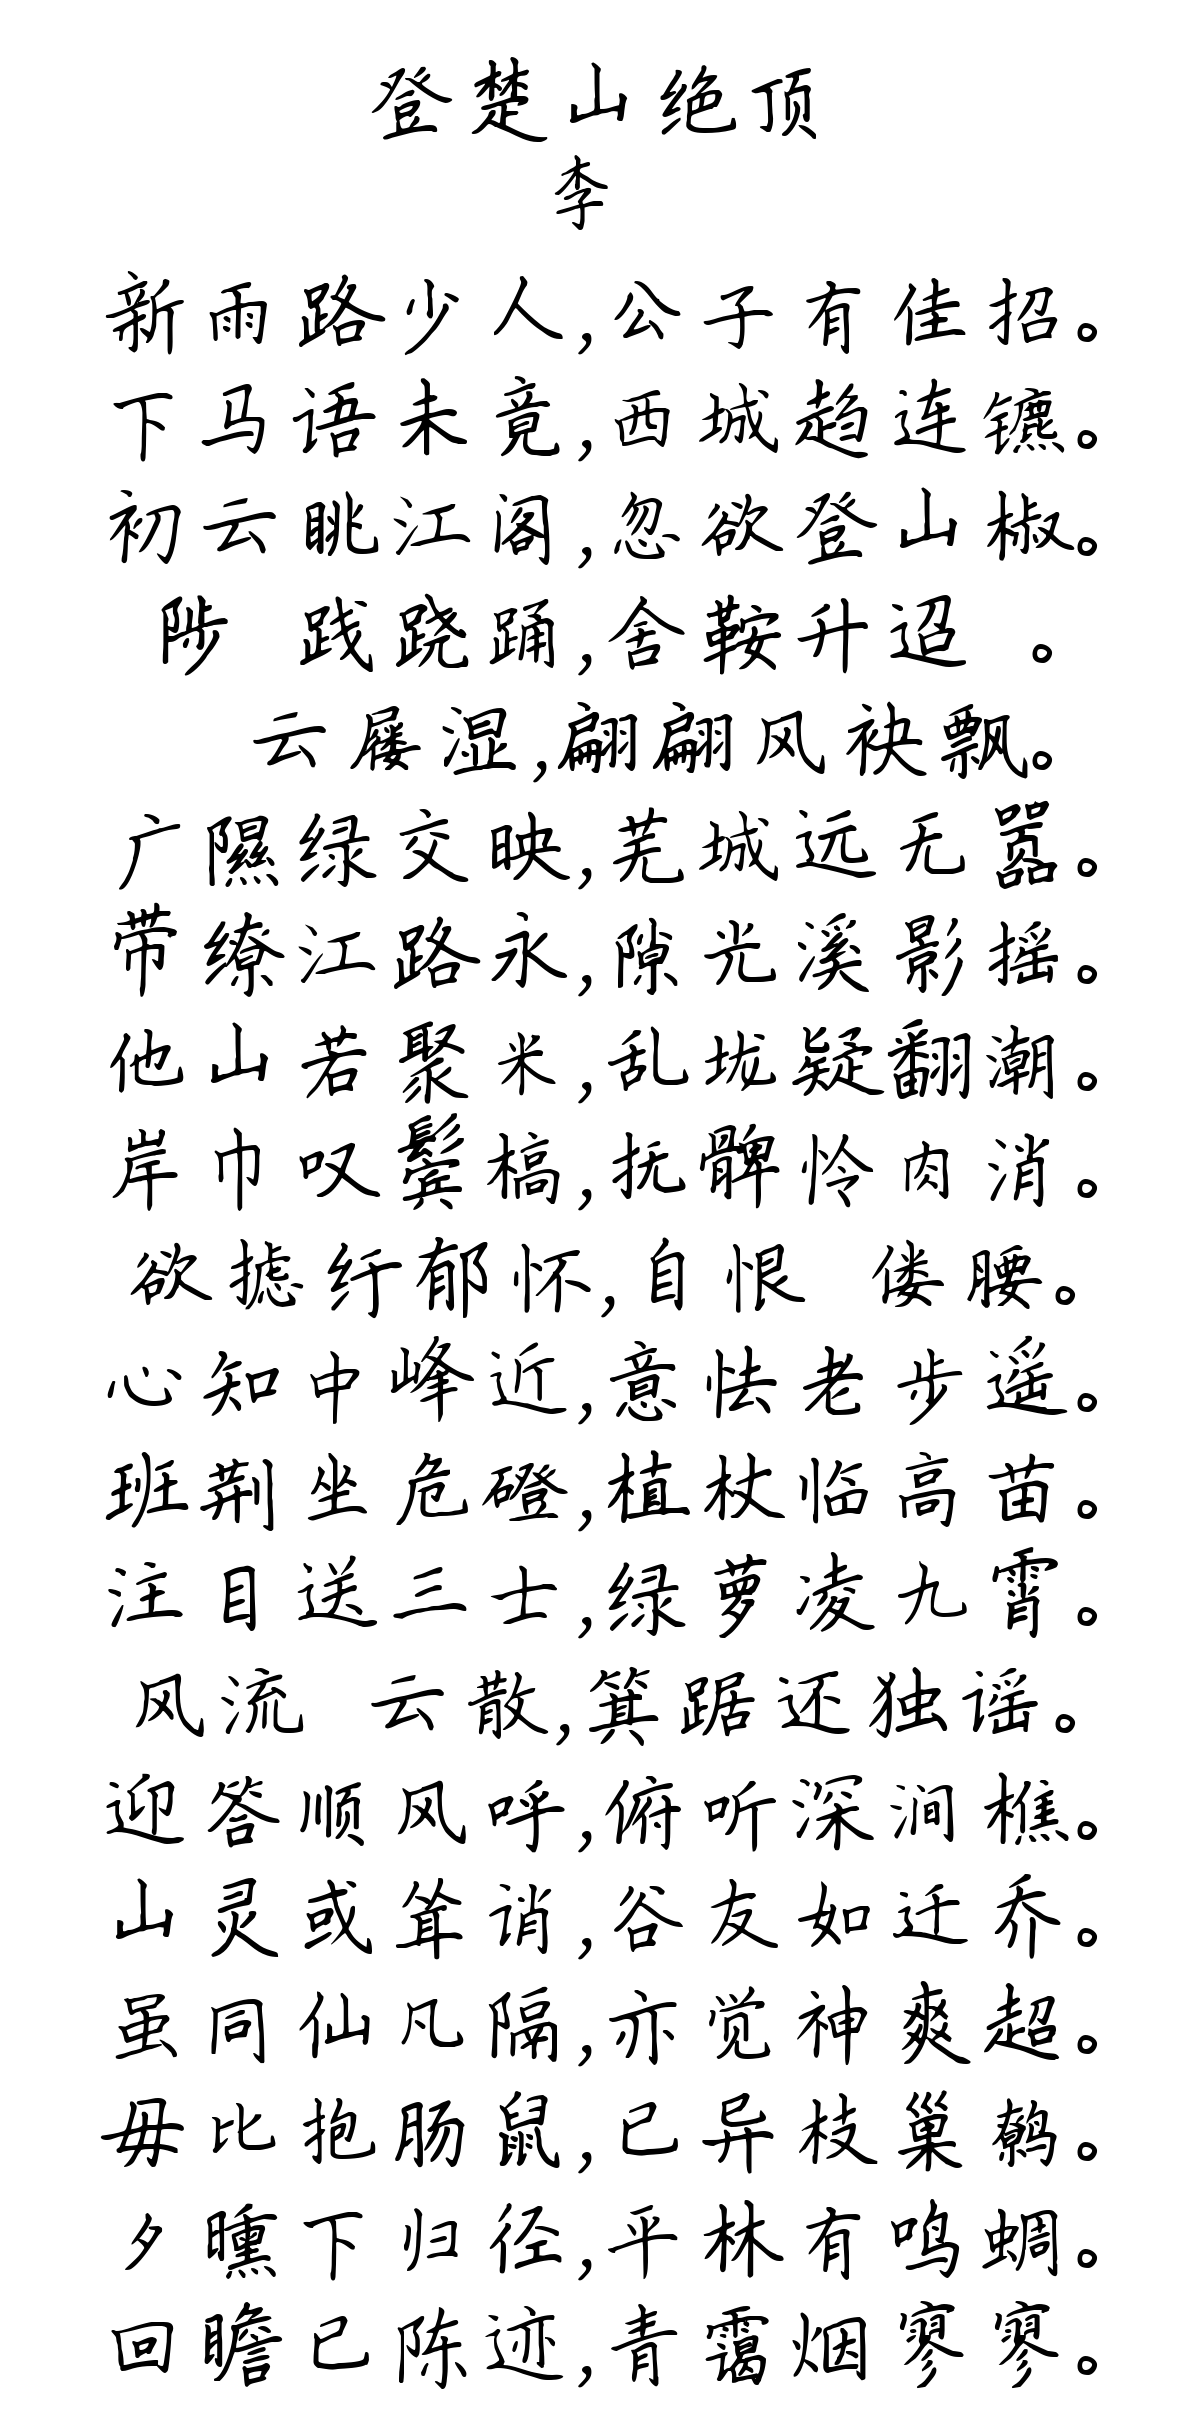 登楚山绝顶
李
新雨路少人,公子有佳招。
下马语未竟,西城趋连镳。
初云眺江阁,忽欲登山椒。
陟 践跷踊,舍鞍升迢 。
云屦湿,翩翩风袂飘。
广隰绿交映,芜城远无嚣。
带缭江路永,隙光溪影摇。
他山若聚米,乱垅疑翻潮。
岸巾叹鬓槁,抚髀怜肉消。
欲摅纡郁怀,自恨 偻腰。
心知中峰近,意怯老步遥。
班荆坐危磴,植杖临高苗。
注目送三士,绿萝凌九霄。
风流 云散,箕踞还独谣。
迎答顺风呼,俯听深涧樵。
山灵或耸诮,谷友如迁乔。
虽同仙凡隔,亦觉神爽超。
毋比抱肠鼠,已异枝巢鹪。
夕曛下归径,平林有鸣蜩。
回瞻已陈迹,青霭烟寥寥。